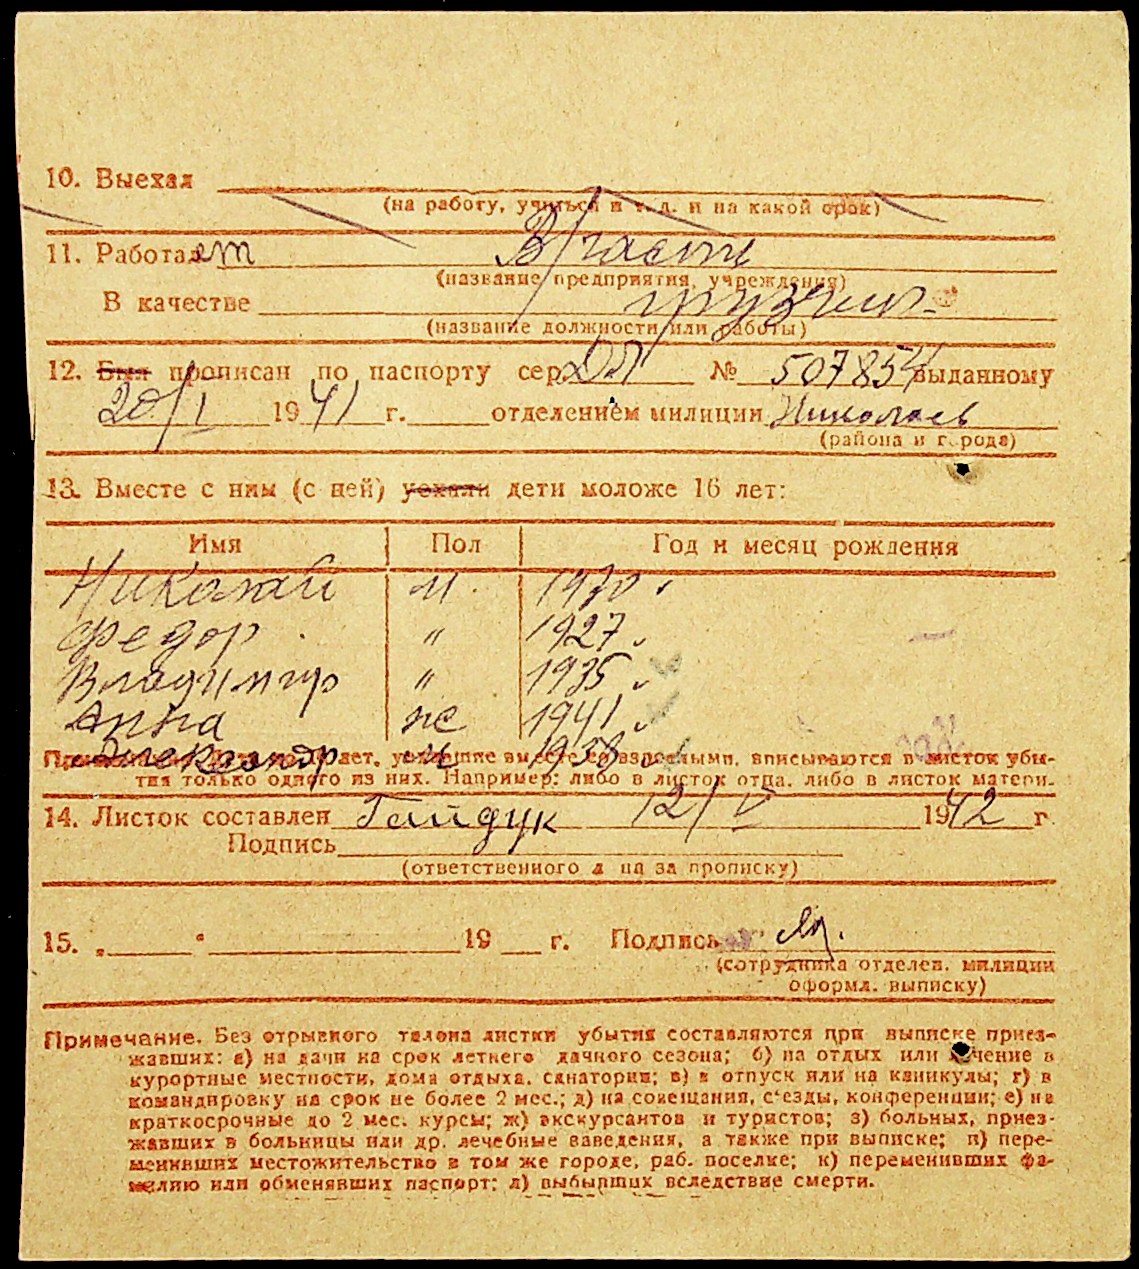 10. Выехал
(на работу, учиться и т. д. и на какой срок)
11. Работает В/части
(название предприятия, учреждения)
В качестве
(название должности или работы)
12. Был прописан по паспорту сер. № 507854 выданному
20/I 1941 г. отделением милиции Николаев
(района и города)
13. Вместе с ним (с ней) уехали дети моложе 16 лет:
Имя Пол Год и месяц рождения
Николай м. 1930
Федор " 1927
Владимир " 1935
Анна же 1941
Александр м 1938
лет, уехавшие вместе со взрослыми, вписываются в листок убы-
тия только одного из них. Например: либо в листок отца, либо в листок матери.
14. Листок составлен Гайдук 12/V 1942 г.
Подпись
(ответственного л на за прописку)
15. „ “ 19 г. Подпись
(сотрудника отделен. милиции
оформл. выписку)
Примечание. Без отрывного талона листки убытия составляются при выписке приез-
жавших: а) на дачи на срок летнего дачного сезона; б) на отдых или лечение в
курортные местности, дома отдыха, санатории; в) в отпуск или на каникулы; г) в
командировку на срок не более 2 мес.; д) на совещания, с'езды, конференции; е) на
краткосрочные до 2 мес. курсы; ж) экскурсантов и туристов; з) больных, приез-
жавших в больницы или др. лечебные заведения, а также при выписке; и) пере-
менивших местожительство в том же городе, раб. поселке; к) переменивших фа-
милию или обменявших паспорт; л) выбывших вследствие смерти.